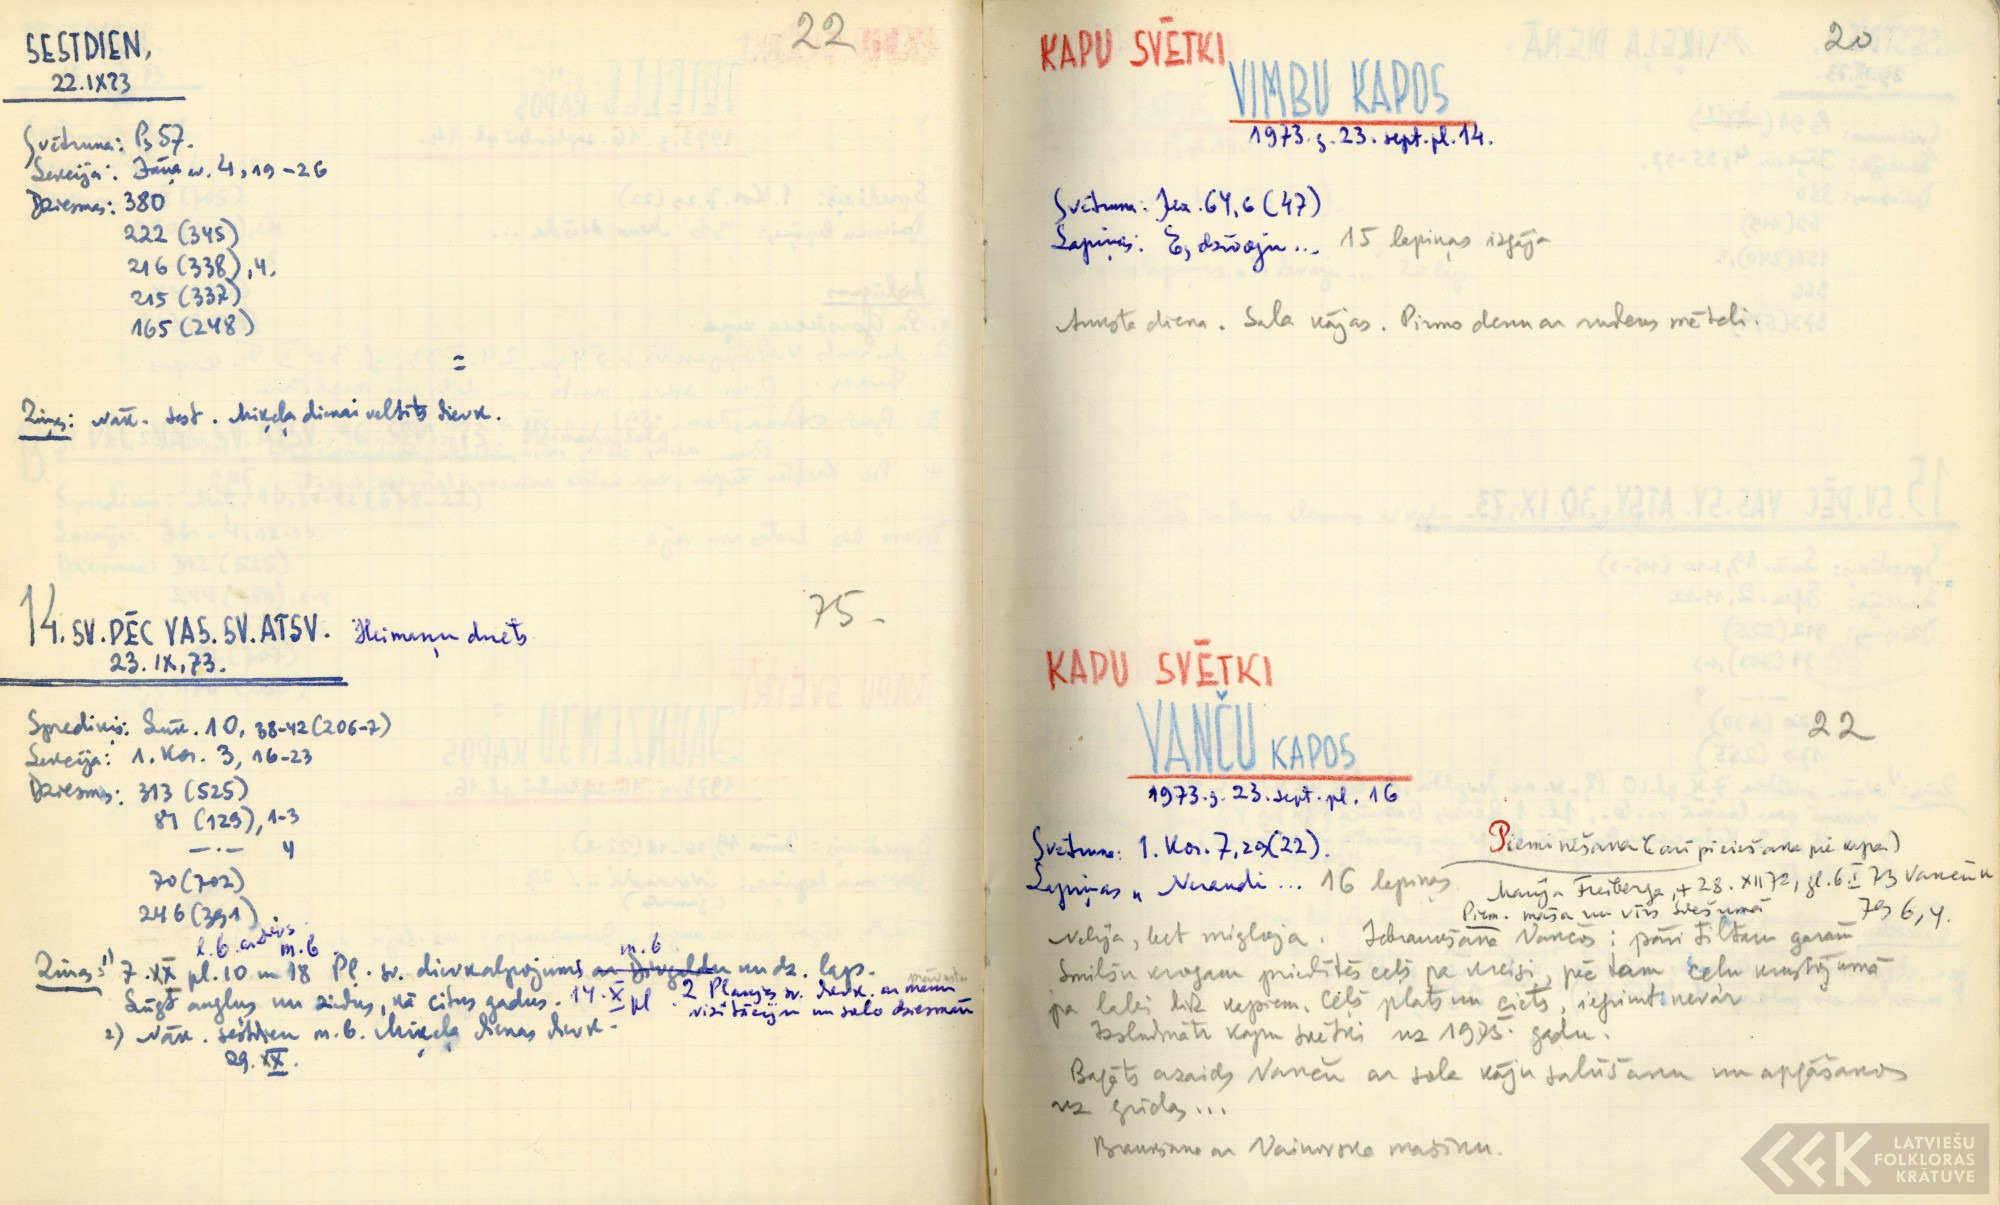 22
SESTDIEN,
22.IX73
Svētruna: Ps 57.
Lekcija: Jāņa ev. 4, 19-26
Dziesmas: 380
222 (345)
216 (338), 4.
215 (337)
165 (248)
=
Ziņas: Nāk. sest. Miķeļa dienai veltīts dievk.
75-
14. SV. PĒC VAS. SV. ATSV. Heimaņu duets
23. IX, 73.
Sprediķis: Lūk. 10, 38-42 (206-7)
Lekcija: 1. Kor. 3, 16-23
Dziesmas: 313 (525)
81 (129), 1-3
—·— 4
70 (702)
246 (391)
l. b. m. b. m. b
Ziņas: 1) 7. XX pl. 10 un 18 Pļ. sv. dievkalpojums ar dievgaldu un dz. laps.
Lūgt augļus un ziedus, kā citus gadus. 14. X pl. 2 Pļaujas sv. dievk. ar mūsu
vizitāciju un solo dziesmām
2) Nāk. sestdien m. b. Miķeļa dienas dievk.
29. IX.
20
KAPU SVĒTKI
VIMBU KAPOS
1973. g. 23. sept. pl. 14.
Svētruna: Jes. 64, 6 (47)
Lapiņas: Es dzīvoju... 15 lapiņas izgāja
Auksta diena. Sala kājas. Pirmo dienu ar rudens mēteli.
KAPU SVĒTKI
VANČU KAPOS
22
1973. g. 23. sept. pl. 16
Svētruna: 1. Kor. 7, 29 (22).
Pieminēšana (arī pieciešana pie kapa)
Lapiņas „ Neraudi... 16 lapiņas
Marija Freiberga, + 28. XII 72, gl. 6. I 73 Vančuk
Piem. māsa un vīrs svešumā Ps 6, 4.
Nelija, bet migloja. Iebraukšana Vančos: pāri tiltam garām
Smilšu krogam priedītēs ceļš pa kreisi, pēc tam ceļu krustojumā
pa labi līdz kapiem. Ceļš plats un ciets, iegrimt nevar
Izsludināti kapu svētki uz 1975. gadu.
Bagāts azaids Vančū ar sola kāju salūšanu un apgāšanos
uz grīdas...
Braukšana ar Vainovska mašīnu.
LATVIEŠU
FOLKLORAS
KRĀTUVE